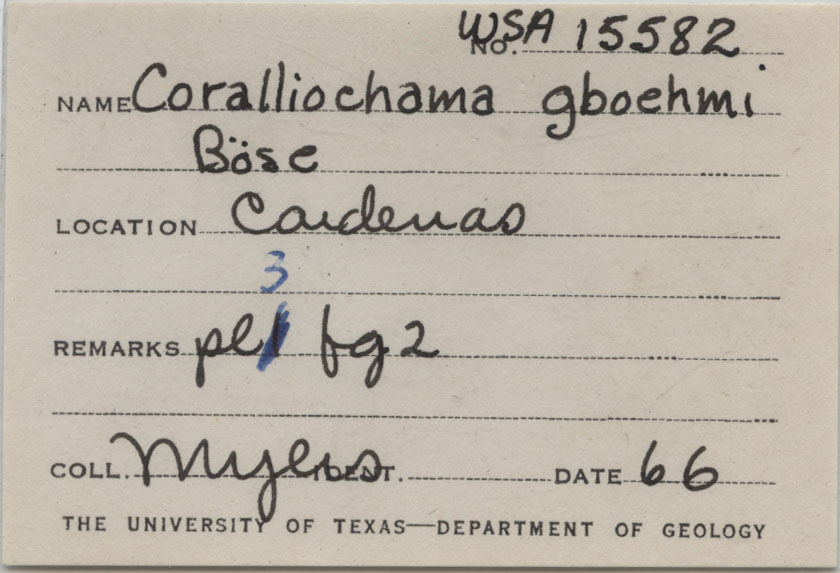 WSA
NO. 15582
NAME Coralliochama gboehmi
Böse
LOCATION Cardenas
3
REMARKS pl fg 2
COLL. Myers IDENT. DATE 66
THE UNIVERSITY OF TEXAS—DEPARTMENT OF GEOLOGY